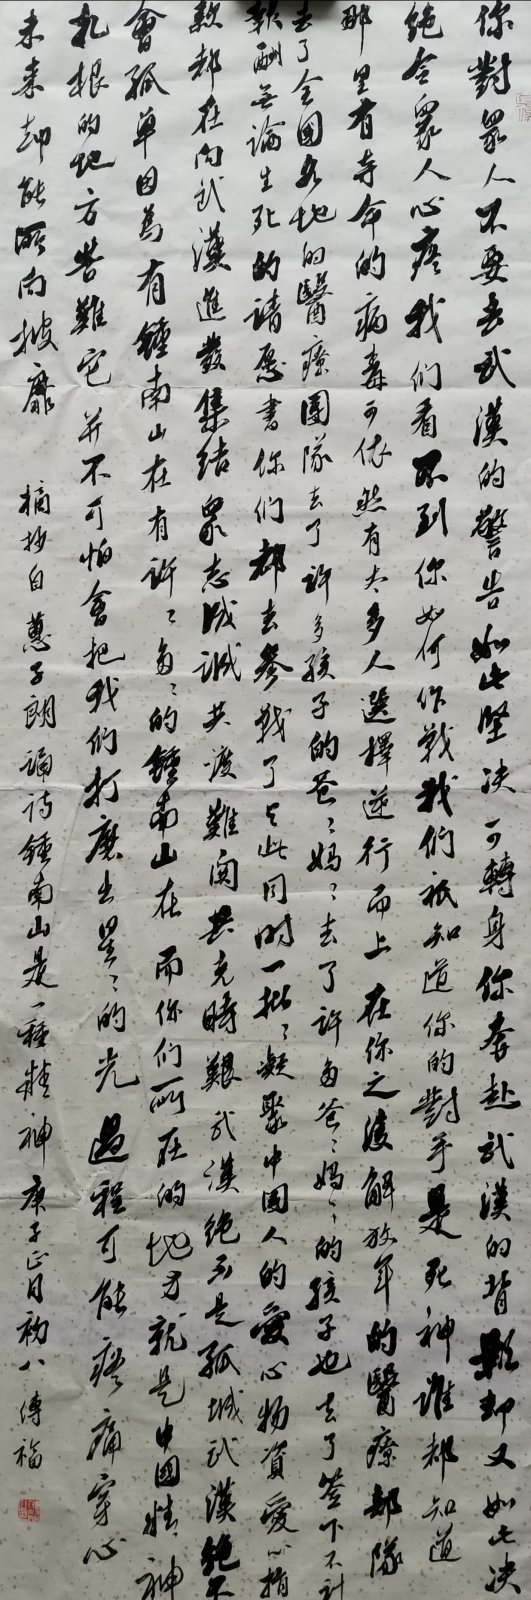 你對眾人不要去武漢的警告如此堅决可轉身你奔赴武漢的背影却又如此决
絕令眾人心疼我們看不到你如何作戰我們祇知道你的對手是死神誰都知道
那里有夺命的病毒可依然有太多人選擇逆行而上在你之後解放军的醫療部隊
去了全國各地的醫療團隊去了許多孩子的爸〻媽〻去了許多爸〻媽〻的孩子也去了签下不计
報酬無論生死的請愿書你们都去参戰了与此同時一批〻凝聚中國人的愛心物資愛心捐
款都在向武漢進發集结眾志成城共渡難関共克時艱武漢絕不是孤城武漢絕不
會孤單因為有鍾南山在有許〻多〻的鍾南山在而你们所在的地方就是中國精神
扎根的地方苦難它并不可怕會把我们打磨出星〻的光過程可能疼痛穿心
未来却能所向披靡 摘抄自蕙子朗誦诗鍾南山是一種精神庚子正月初八傳福